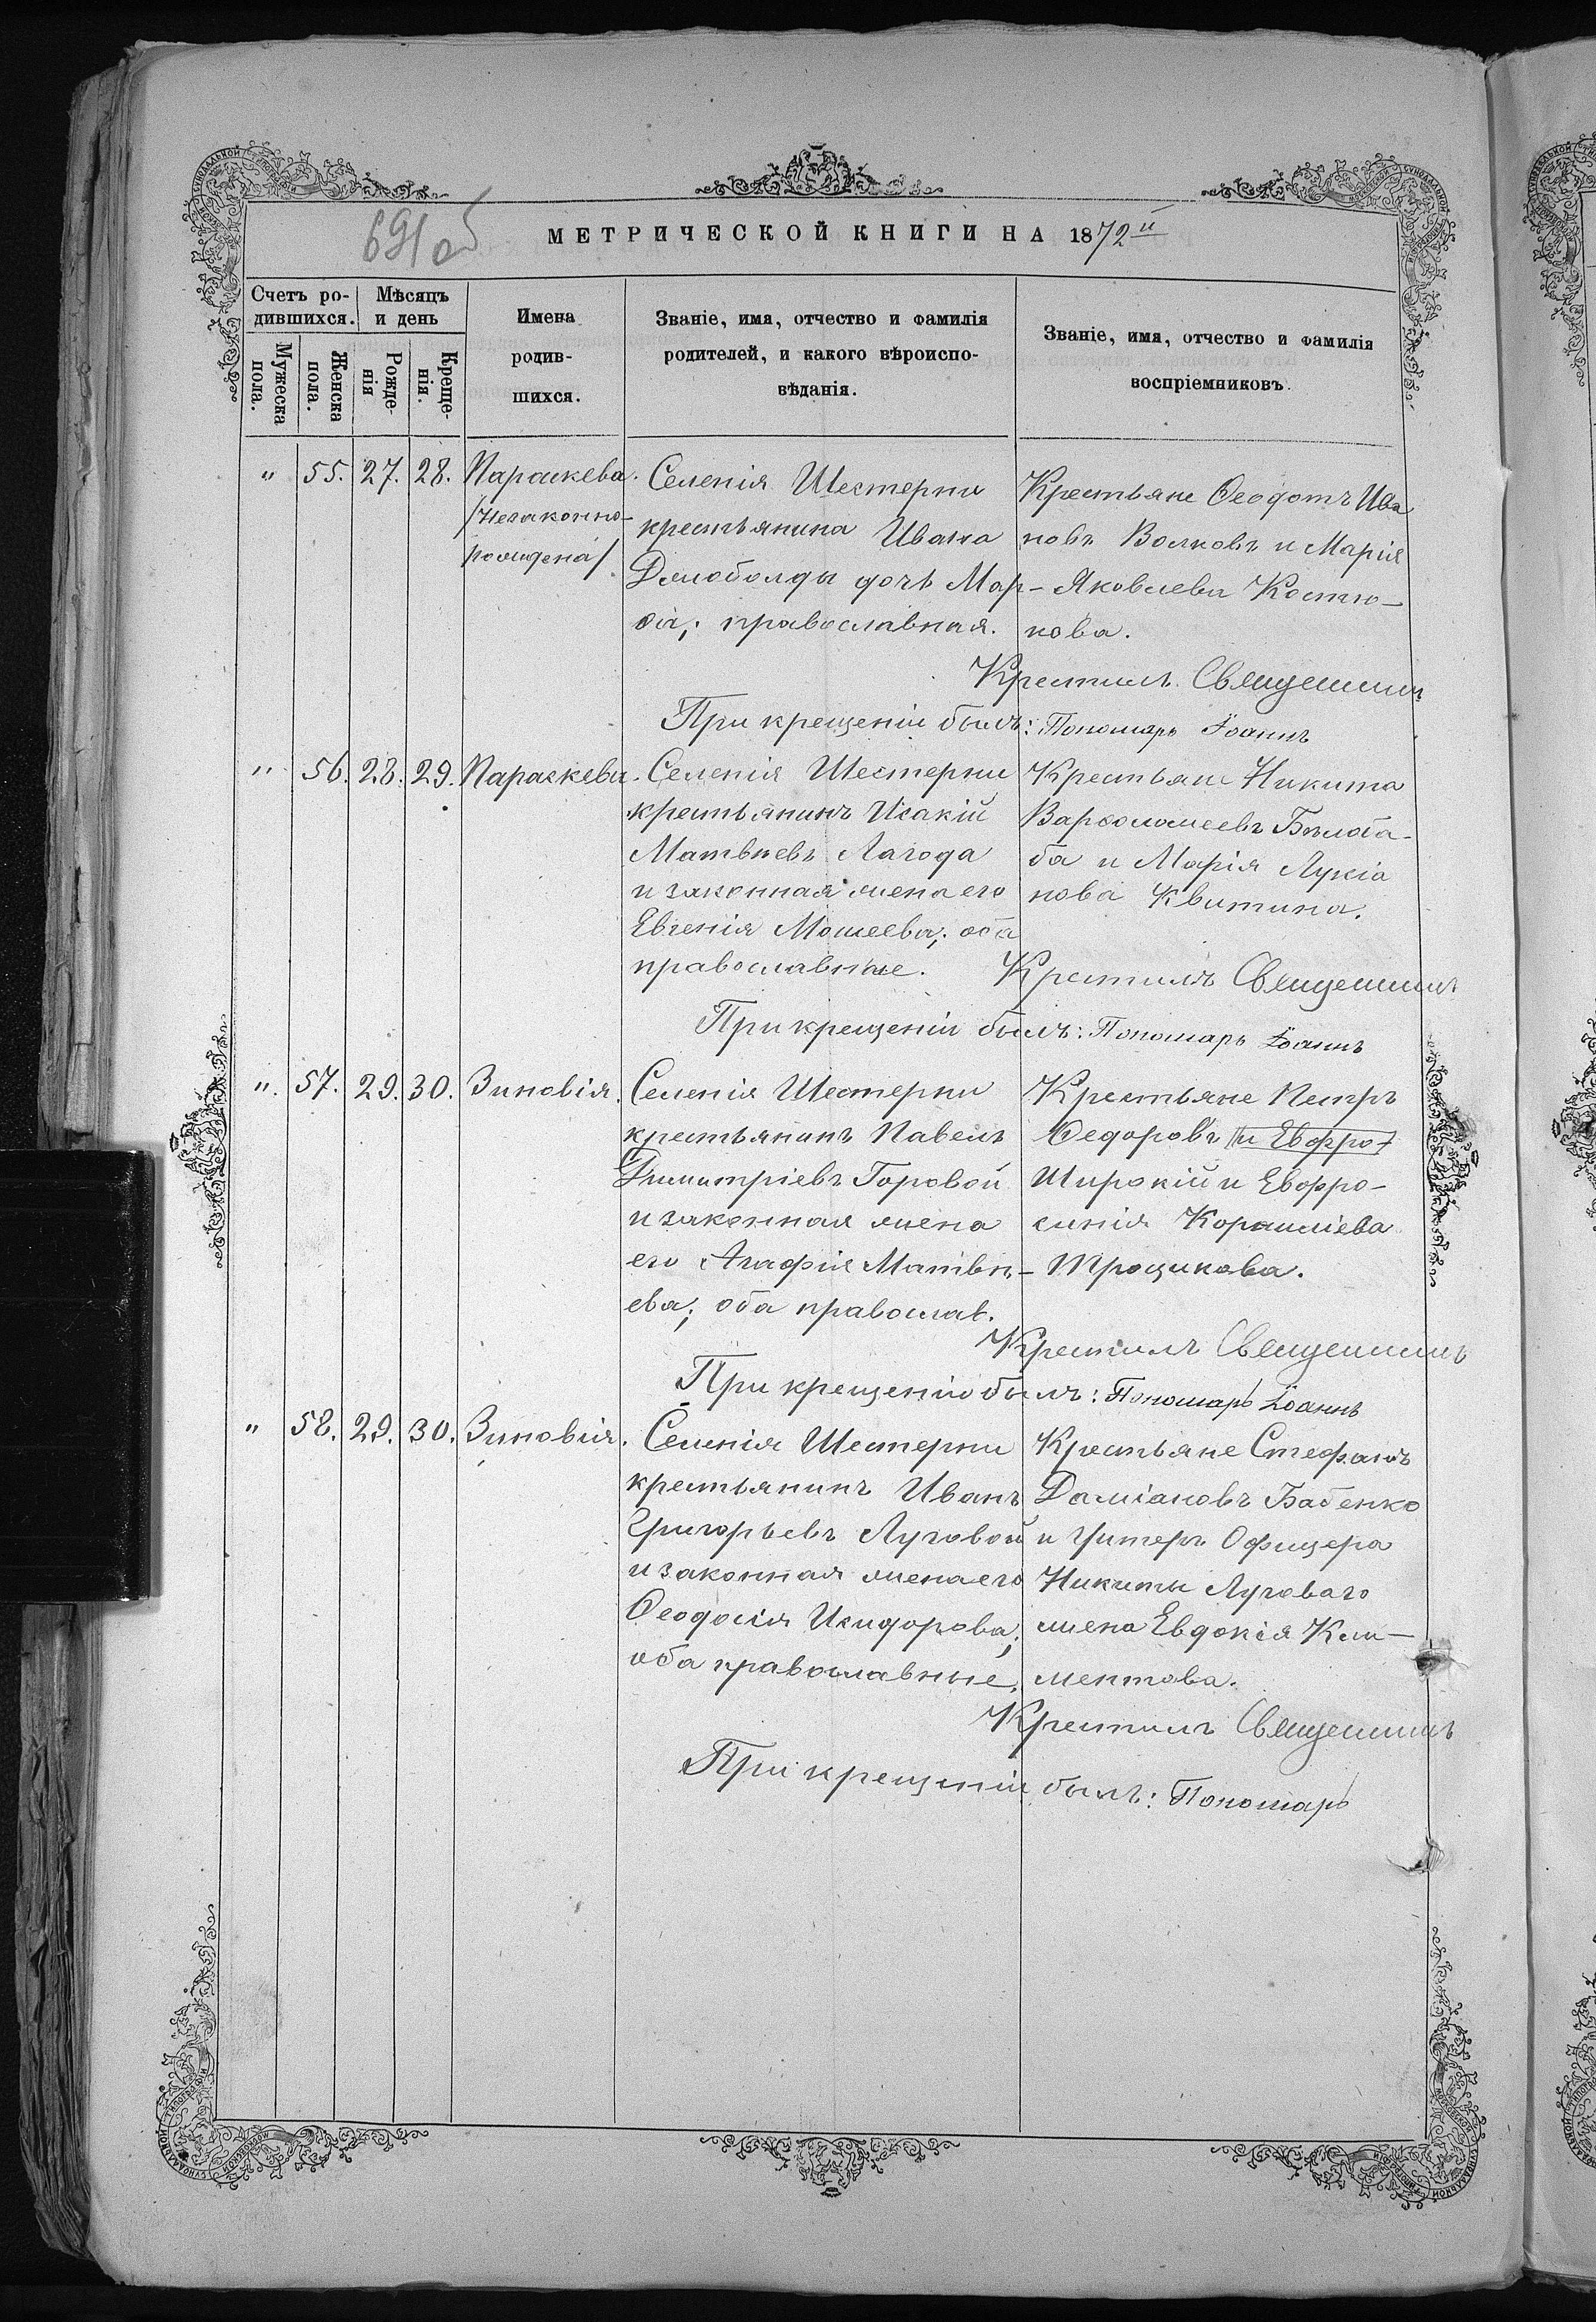 691 об
МЕТРИЧЕСКОЙ КНИГИ НА 1872й
Счетъ ро-
дившихся.
Мѣсяцъ
и день
Мужеска
пола.
Женска
пола.
Рожде-
нія
Креще-
нія.
Имена
родив-
шихся.
Званіе, имя, отчество и фамилія
родителей, и какого вѣроиспо-
вѣданія.
Званіе, имя, отчество и фамилія
воспріемниковъ.
" 55. 27. 28. Параскева.
/Незаконно-
рождена/
Селенія Шестерни
крестьянина Ивана
дочь Мар-
ѳа; православная.
Крестьяне Ѳеодотъ Ива
новъ Волковъ и Марія
Яковлева Костю-
кова.
Крестилъ Священникъ
При крещеніи былъ: Пономарь Іоаннъ
" 56. 28. 29. Параскева.
Селенія Шестерни
крестьянинъ Исакій
Матвѣевъ Лагода
и законная жена его
Евгенія Моисеева; оба
православные.
Крестьяне Никита
Варѳоломеевъ Бѣлоба-
ба и Марія Лукіа
нова Квитина.
Крестилъ Священникъ
При крещеніи былъ: Пономарь Іоаннъ
". 57. 29. 30. Зиновія.
Селенія Шестерни
крестьянинъ Павелъ
Димитріевъ Горовой
и законная жена
его Агафія Матвѣ-
ева; оба православ.
Крестьяне Петръ
Ѳедоровъ и Евфро-
Широкій и Евфро-
синія Корниліева
Трощикова.
Крестилъ Священникъ
При крещеніи былъ: Пономарь Іоаннъ
" 58. 29. 30. Зиновія.
Селенія Шестерни
крестьянинъ Иванъ
Григорьевъ Луговой
и законная жена его
Ѳеодосія Исидорова;
оба православные.
Крестьяне Стефанъ
Даміановъ Бабенко
и Унтеръ Офицера
Никиты Луговаго
жена Евдокія Кли-
ментова.
Крестилъ Священникъ
При крещеніи былъ: Пономарь